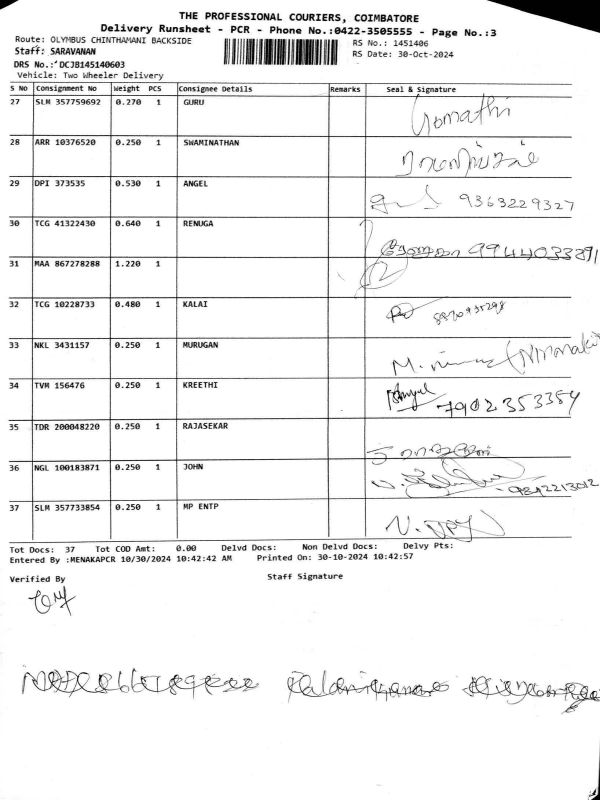 THE PROFESSIONAL COURIERS, COIMBATORE
Delivery Runsheet - PCR - Phone No.:0422-3505555 - Page No.:3
Route: OLYMBUS CHINTHAMANI BACKSIDE
RS No.: 1451406
Staff: SARAVANAN
RS Date: 30-Oct-2024
DRS No.:'DCJB145140603
Vehicle: Two Wheeler Delivery
S No Consignment No Weight PCS Consignee Details Remarks Seal & Signature
27 SLM 357759692 0.270 1 GURU Gomathi
28 ARR 10376520 0.250 1 SWAMINATHAN
29 DPI 373535 0.530 1 ANGEL 9363229327
30 TCG 41322430 0.640 1 RENUGA
31 MAA 867278288 1.220 1
32 TCG 10228733 0.480 1 KALAI
33 NKL 3431157 0.250 1 MURUGAN
34 TVM 156476 0.250 1 KREETHI 7902353384
35 TDR 200048220 0.250 1 RAJASEKAR
36 NGL 100183871 0.250 1 JOHN
37 SLM 357733854 0.250 1 MP ENTP
Tot Docs: 37 Tot COD Amt: 0.00 Delvd Docs: Non Delvd Docs: Delvy Pts:
Entered By :MENAKAPCR 10/30/2024 10:42:42 AM Printed On: 30-10-2024 10:42:57
Verified By Staff Signature